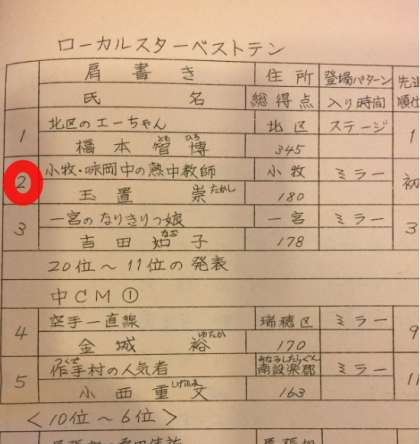 ローカルスターベストテン
肩書き 住所 登場パターン
氏名 総得点 入り時間
1 北区のエーちゃん 北区 ステージ
橋本智博 345 1
2 小牧・味岡中の熱中教師 小牧 ミラー
玉置崇 たかし 180 初
3 一宮のなりきりっ娘 一宮 ミラー
吉田 子 178 3
20位～11位の発表
中CM①
4 空手一直線 瑞穂区 ミラー
金城裕 ゆたか 170 9
5 作手村の人気者 南設楽郡 ミラー
小西重文 163 11
<10位～6位>